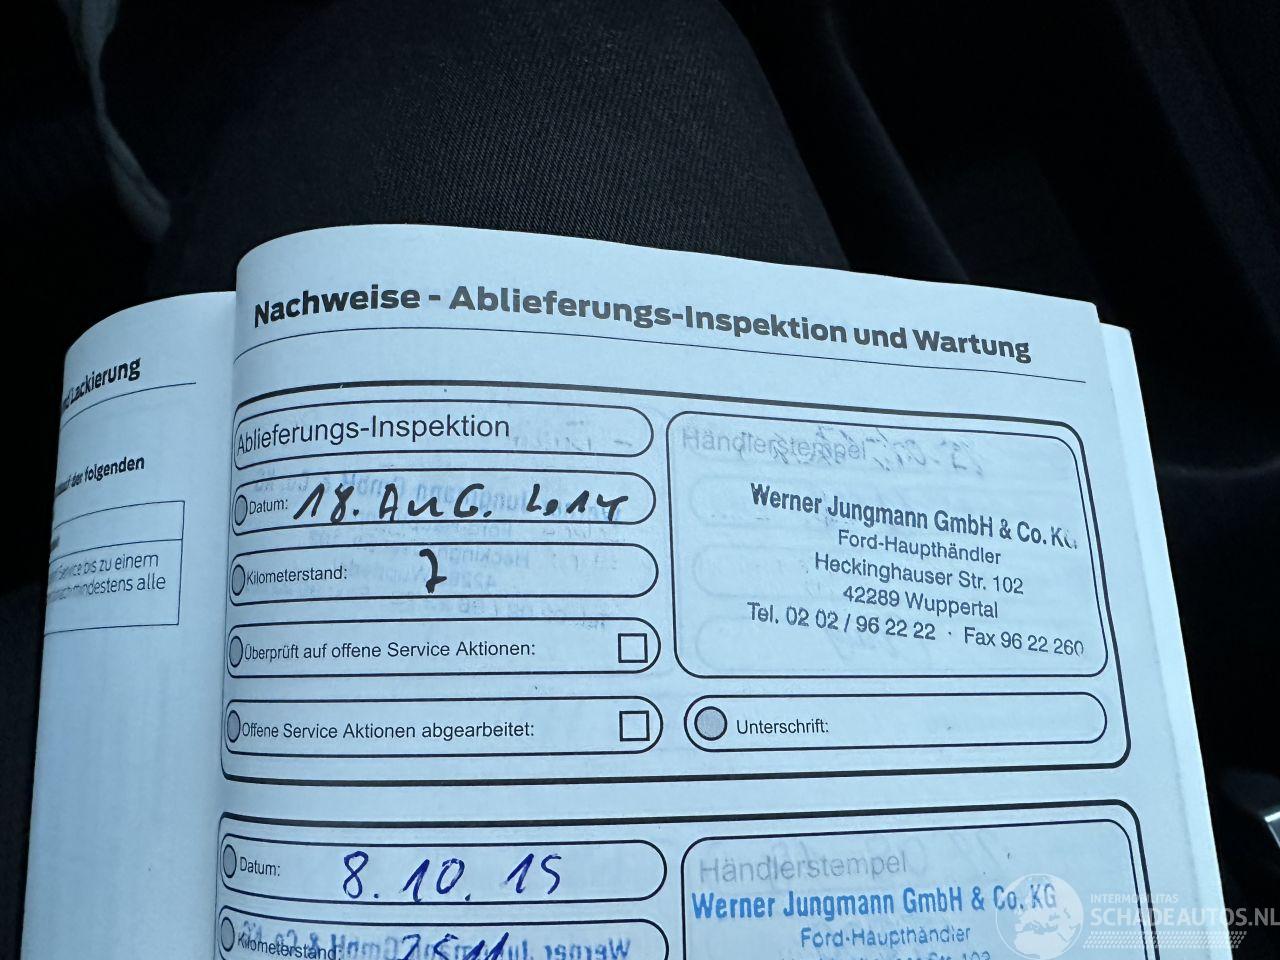 Lackierung
der folgenden
Service bis zu einem
mindestens alle
Nachweise - Ablieferungs-Inspektion und Wartung
Ablieferungs-Inspektion
Datum: 18. AUG. 2014
Kilometerstand: 7
Überprüft auf offene Service Aktionen:
Offene Service Aktionen abgearbeitet:
Händlerstempel
Werner Jungmann GmbH & Co. KG
Ford-Haupthändler
Heckinghauser Str. 102
42289 Wuppertal
Tel. 02 02 / 96 22 22 · Fax 96 22 260
Unterschrift:
Datum: 8. 10. 15
Kilometerstand:
Händlerstempel
Werner Jungmann GmbH & Co. KG
Ford-Haupthändler
INTERMOBILITAS
SCHADEAUTOS.NL